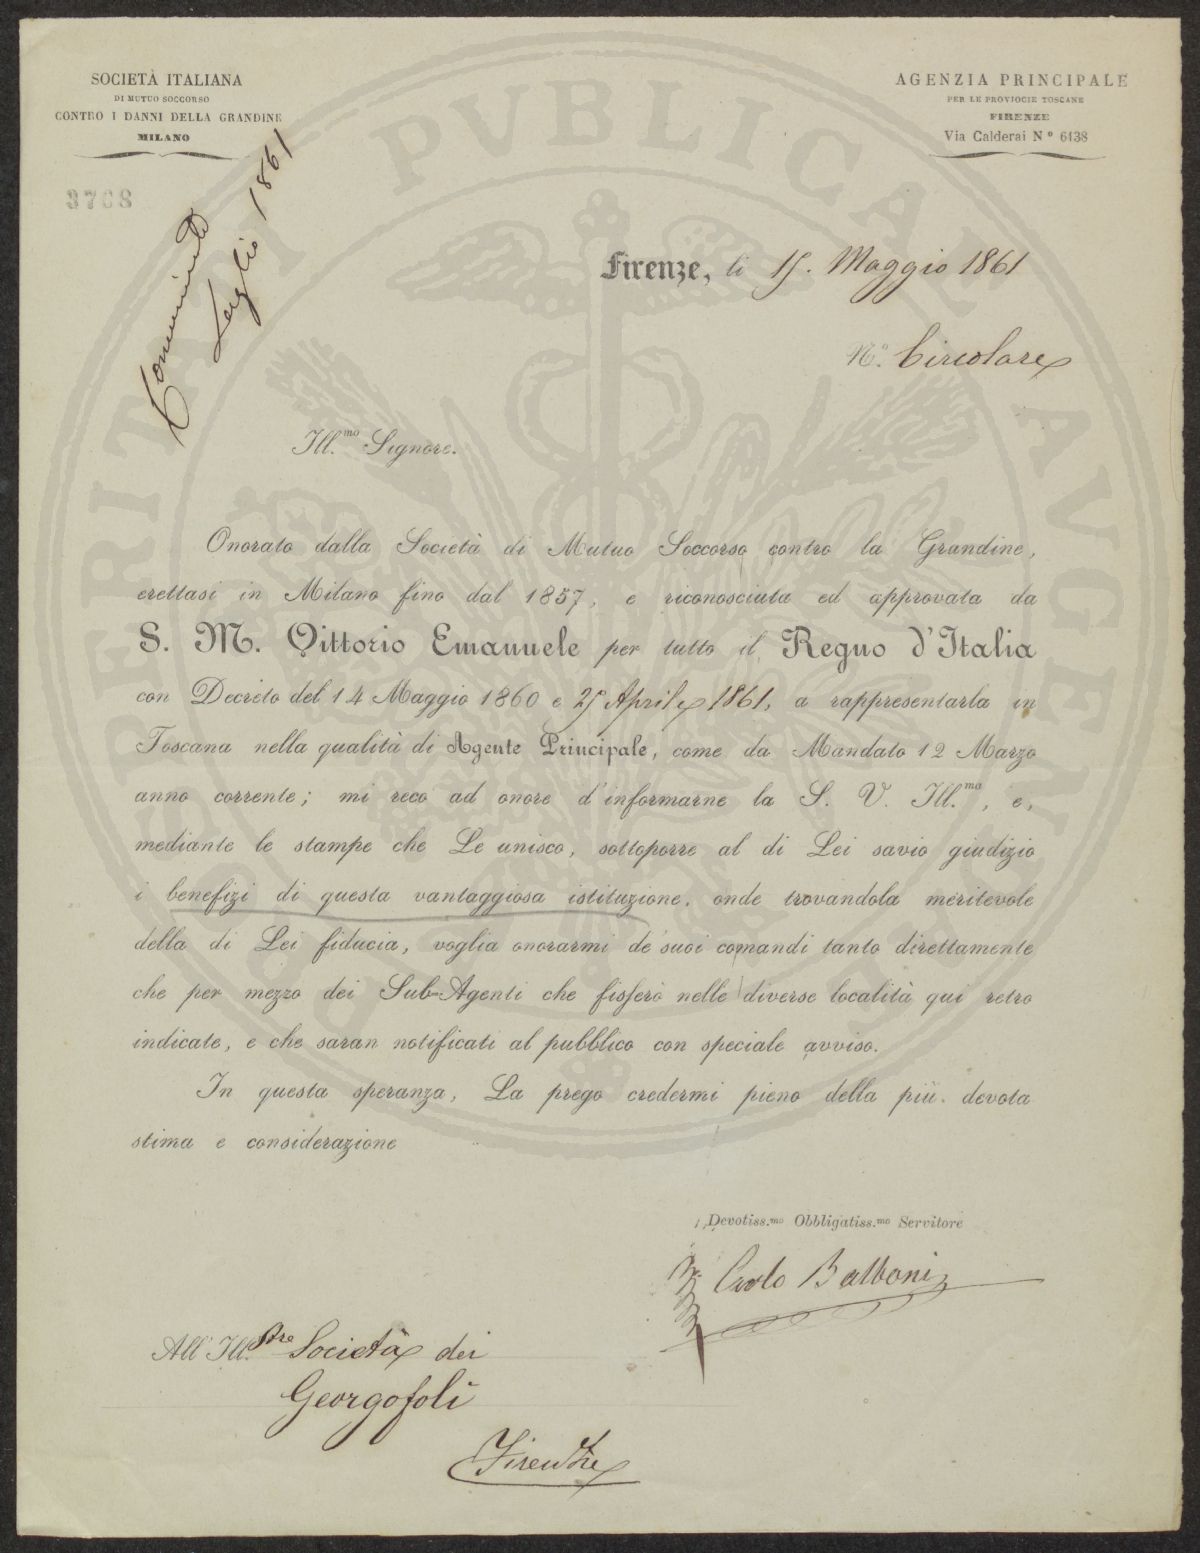 SOCIETÀ ITALIANA
DI MUTUO SOCCORSO
CONTRO I DANNI DELLA GRANDINE
MILANO
AGENZIA PRINCIPALE
PER LE PROVIOCIE TOSCANE
FIRENZE
Via Calderai N.º 6138
3708
Luglio 1861
Firenze, li 15. Maggio 1861
N.º Circolare
Ill.mo Signore.
Onorato dalla Società di Mutuo Soccorso contro la Grandine,
erettasi in Milano fino dal 1857, e riconosciuta ed approvata da
S. M. Vittorio Emanuele per tutto il Regno d'Italia
con Decreto del 14 Maggio 1860 e 25 Aprile 1861, a rappresentarla in
Toscana nella qualità di Agente Principale, come da Mandato 12 Marzo
anno corrente; mi reco ad onore d'informarne la S. V. Ill.ma, e,
mediante le stampe che Le unisco, sottoporre al di Lei savio giudizio
i benefizi di questa vantaggiosa istituzione, onde trovandola meritevole
della di Lei fiducia, voglia onorarmi de' suoi comandi tanto direttamente
che per mezzo dei Sub-Agenti che fisserò nelle diverse località qui retro
indicate, e che saran notificati al pubblico con speciale avviso.
In questa speranza, La prego credermi pieno della più devota
stima e considerazione
Devotiss.mo Obbligatiss.mo Servitore
Carlo Balboni
All' Ill.stre Società dei
Georgofoli
Firenze
PUBLICAE